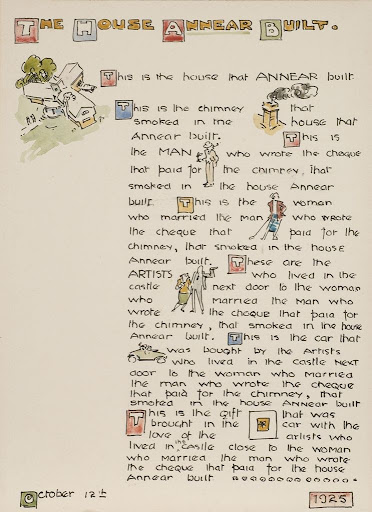 The House Annear Built.
This is the house that ANNEAR built
This is the chimney that
smoked in the house that
Annear built. This is
the MAN who wrote the cheque
that paid for the chimney, that
smoked in the house Annear
built. This is the woman
who married the man who wrote
the cheque that paid for the
chimney, that smoked, in the house
Annear built. These are the
ARTISTS who lived in the
castle next door to the woman
who married the man who
wrote the cheque that paid for
the chimney, that smoked in the house
Annear built. This is the car that
was bought by the Artists
who lived in the castle next
door to the woman who married
the man who wrote the cheque
that paid for the chimney, that
smoked in the house Annear built
This is the gift that was
brought in the car with the
love of the artists who
lived in the castle close to the woman
who married the man who wrote
the cheque that paid for the house
Annear built
October 12th 1925